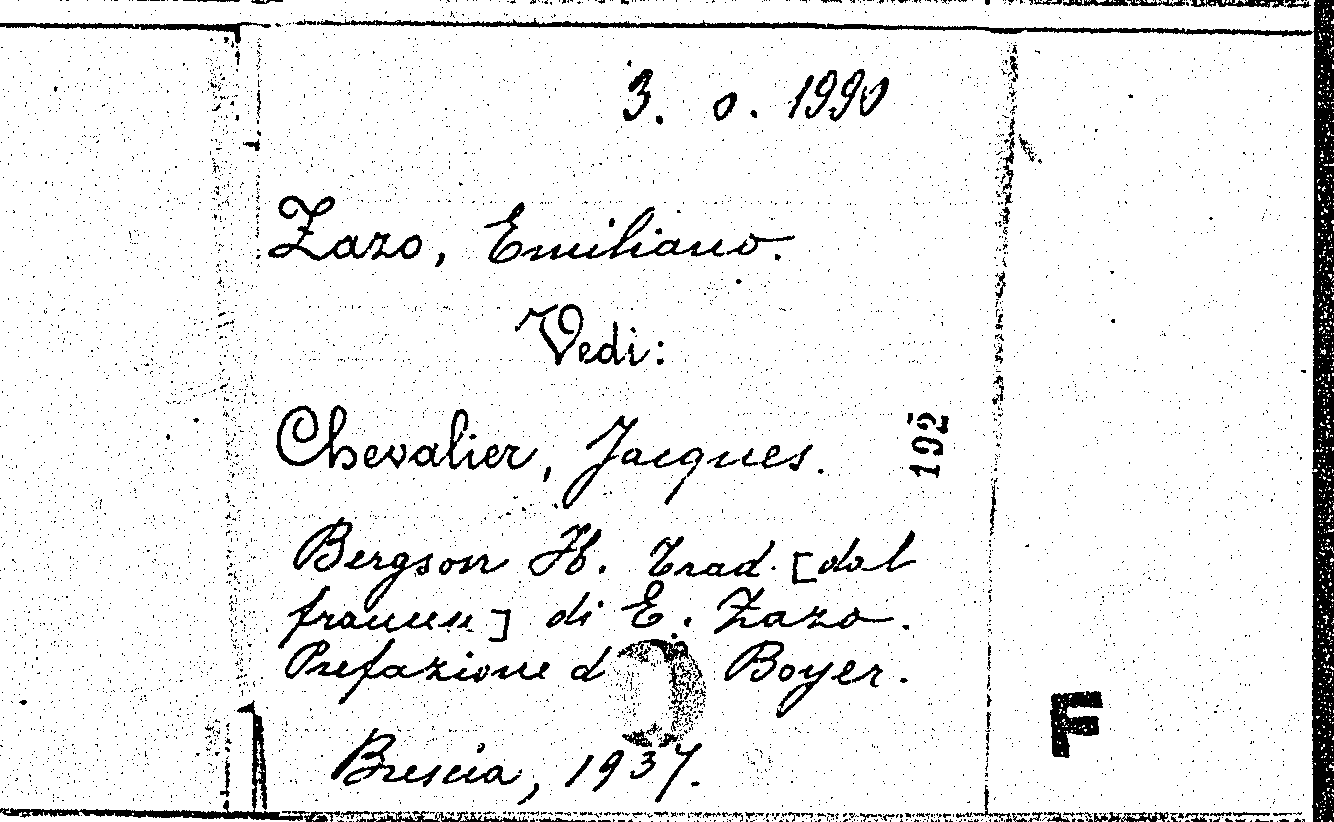 3. o. 1990
Zazo, Emiliano.
Vedi:
Chevalier, Jacques.
192
Bergson H. Trad. [dal
francese] di E. Zazo.
Prefazione d Boyer.
F
Brescia, 1937.